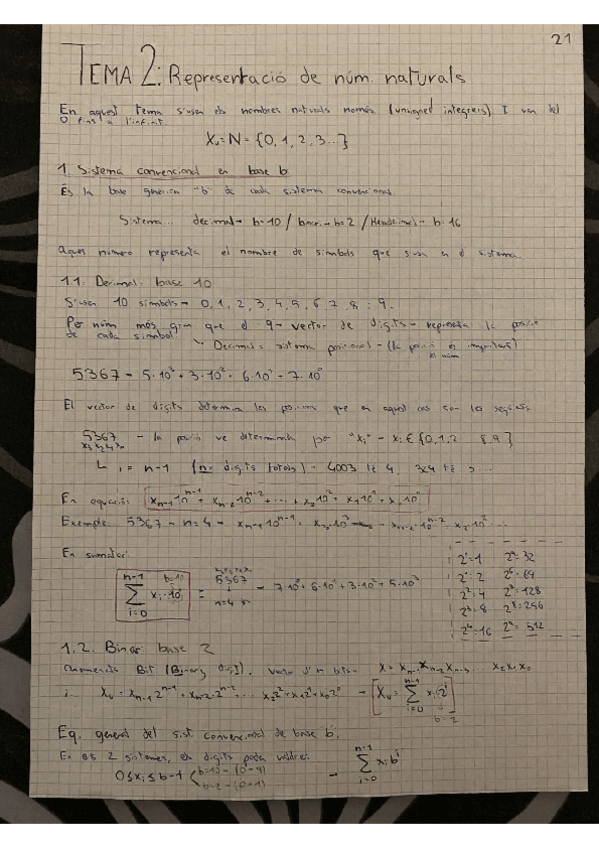 21
TEMA 2: Representació de núm. naturals
En aquest tema s'usen els nombres naturals només (unsigned integers). I van del
0 fins a l'infinit.
Xᵤ = N = {0, 1, 2, 3...}
1. Sistema convencional en base b
És la base genèrica "b" de cada sistema convencional.
Sistema... decimal → b=10 / → b=2 / → b=16
Aquest número representa el nombre de símbols que s'usa en el sistema.
1.1. Decimal: base 10
S'usen 10 símbols → 0, 1, 2, 3, 4, 5, 6, 7, 8 i 9.
Per núm. més gran que el 9 → vector de dígits → representa la posició
de cada símbol. Decimal = sistema posicional → (la posició és important)
el núm
5367 → 5·10³ + 3·10² + 6·10¹ + 7·10⁰
El vector de dígits determina les posicions que en aquest cas són les següents
5367 → la posició ve determinada per "xᵢ" → xᵢ ∈ {0, 1, 2 ... 8, 9}
x₃x₂x₁x₀
i = n-1 (n = dígits totals) → 4003 té 4, 324 té 3...
En equació: xₙ₋₁10ⁿ⁻¹ + xₙ₋₂10ⁿ⁻² + ... + x₂10² + x₁10¹ + x₀10⁰
Exemple: 5367 → n=4 → xₙ₋₁10ⁿ⁻¹ = x₃10³ → xₙ₋₂10ⁿ⁻² = x₂10² ...
En sumatori:
n-1 b=10
∑ xᵢ·10ⁱ = 5367 → 7·10⁰ + 6·10¹ + 3·10² + 5·10³
i=0 n=4
2⁰=1 2⁵=32
2¹=2 2⁶=64
2²=4 2⁷=128
2³=8 2⁸=256
2⁴=16 2⁹=512
1.2. Binari: base 2
Bit (Binary Digit). Vector d'n bits X = xₙ₋₁xₙ₋₂xₙ₋₃... x₂x₁x₀
i... Xᵤ = xₙ₋₁2ⁿ⁻¹ + xₙ₋₂2ⁿ⁻² ... x₂2² + x₁2¹ + x₀2⁰ → Xᵤ = ∑ xᵢ2ⁱ
n-1
i=0 b=2
Eq. general del sist. convencional de base b:
En els 2 sistemes, els dígits poden valdre:
0≤xᵢ≤b-1 b=10 → (0-9)
b=2 → (0-1)
→ ∑ xᵢbⁱ
n-1
i=0